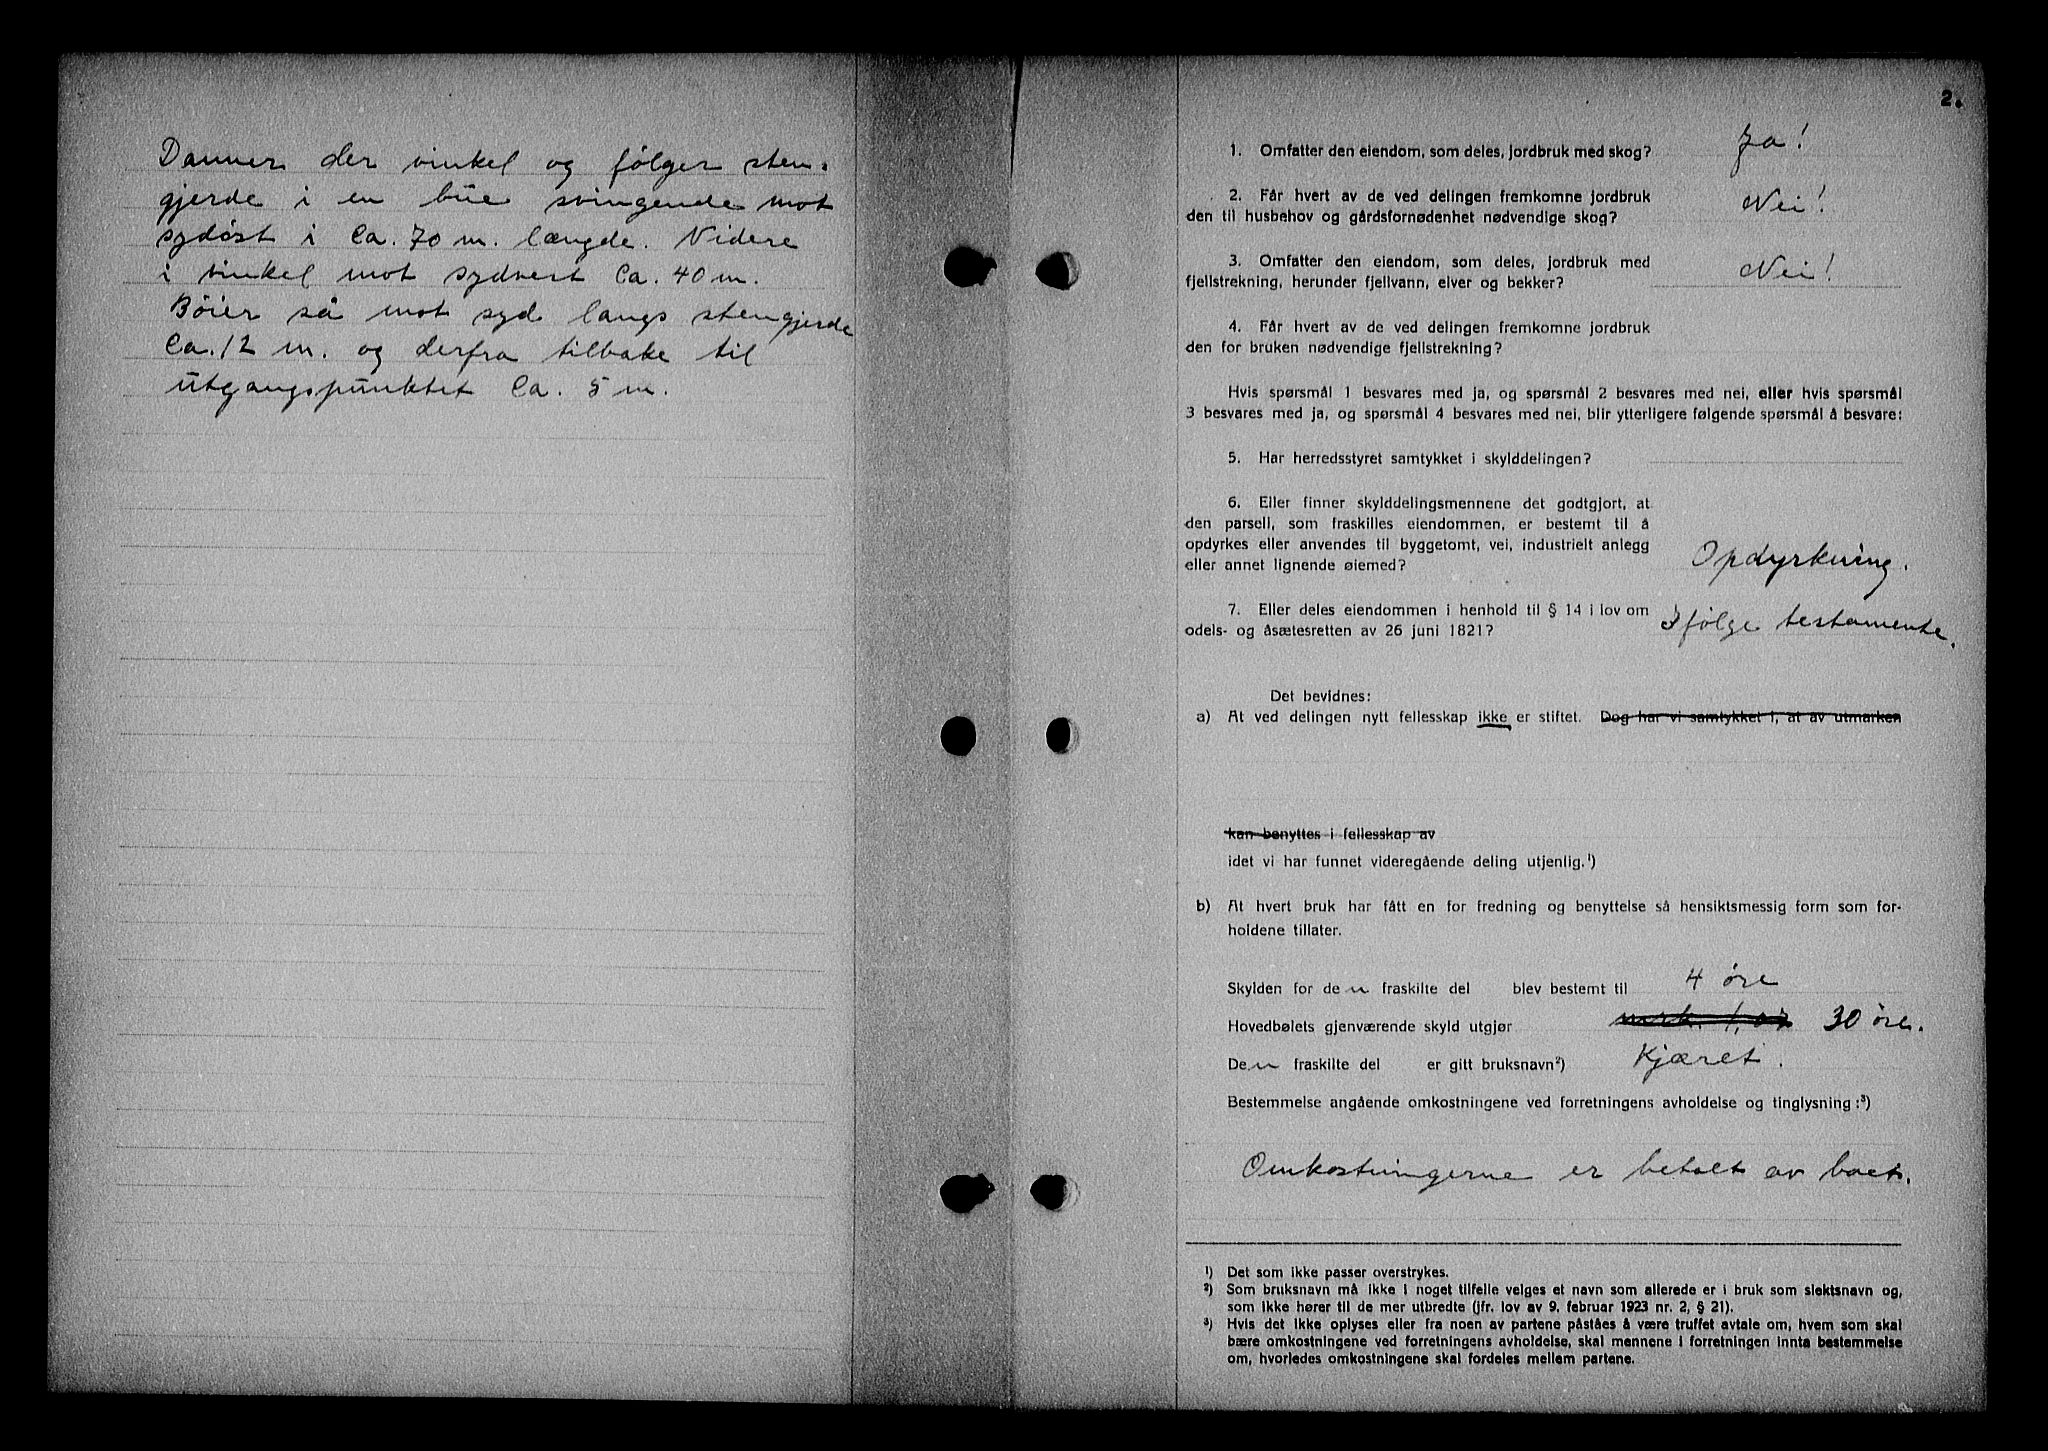 Danner der vinkel og følger sten-
gjerde i en bue svingende mot
sydøst i Ca. 70 m. længde. Videre
i vinkel mot sydvest Ca. 40 m.
Bøier så mot syd langs stengjerde
Ca. 12 m. og derfra tilbake til
utgangspunktet Ca. 5 m.
2.
1. Omfatter den eiendom, som deles, jordbruk med skog? Ja!
2. Får hvert av de ved delingen fremkomne jordbruk
den til husbehov og gårdsfornødenhet nødvendige skog? Nei!
3. Omfatter den eiendom, som deles, jordbruk med
fjellstrekning, herunder fjellvann, elver og bekker? Nei!
4. Får hvert av de ved delingen fremkomne jordbruk
den for bruken nødvendige fjellstrekning?
Hvis spørsmål 1 besvares med ja, og spørsmål 2 besvares med nei, eller hvis spørsmål
3 besvares med ja, og spørsmål 4 besvares med nei, blir ytterligere følgende spørsmål å besvare:
5. Har herredsstyret samtykket i skylddelingen?
6. Eller finner skylddelingsmennene det godtgjort, at
den parsell, som fraskilles eiendommen, er bestemt til å
opdyrkes eller anvendes til byggetomt, vei, industrielt anlegg
eller annet lignende øiemed? Opdyrkning.
7. Eller deles eiendommen i henhold til § 14 i lov om
odels- og åsætesretten av 26 juni 1821? Ifølge testamente.
Det bevidnes:
a) At ved delingen nytt fellesskap ikke er stiftet. Dog har vi samtykket i, at av utmarken
kan benyttes i fellesskap av
idet vi har funnet videregående deling utjenlig.¹)
b) At hvert bruk har fått en for fredning og benyttelse så hensiktsmessig form som for-
holdene tillater.
Skylden for den fraskilte del blev bestemt til 4 øre
Hovedbølets gjenværende skyld utgjør mrk. 1,07 30 øre.
Den fraskilte del er gitt bruksnavn²) Kjæret.
Bestemmelse angående omkostningene ved forretningens avholdelse og tinglysning:³)
Omkostningerne er betalt av boet.
¹) Det som ikke passer overstrykes.
²) Som bruksnavn må ikke i noget tilfelle velges et navn som allerede er i bruk som slektsnavn og,
som ikke hører til de mer utbredte (jfr. lov av 9. februar 1923 nr. 2, § 21).
³) Hvis det ikke oplyses eller fra noen av partene påståes å være truffet avtale om, hvem som skal
bære omkostningene ved forretningens avholdelse, skal mennene i forretningen innta bestemmelse
om, hvorledes omkostningene skal fordeles mellem partene.